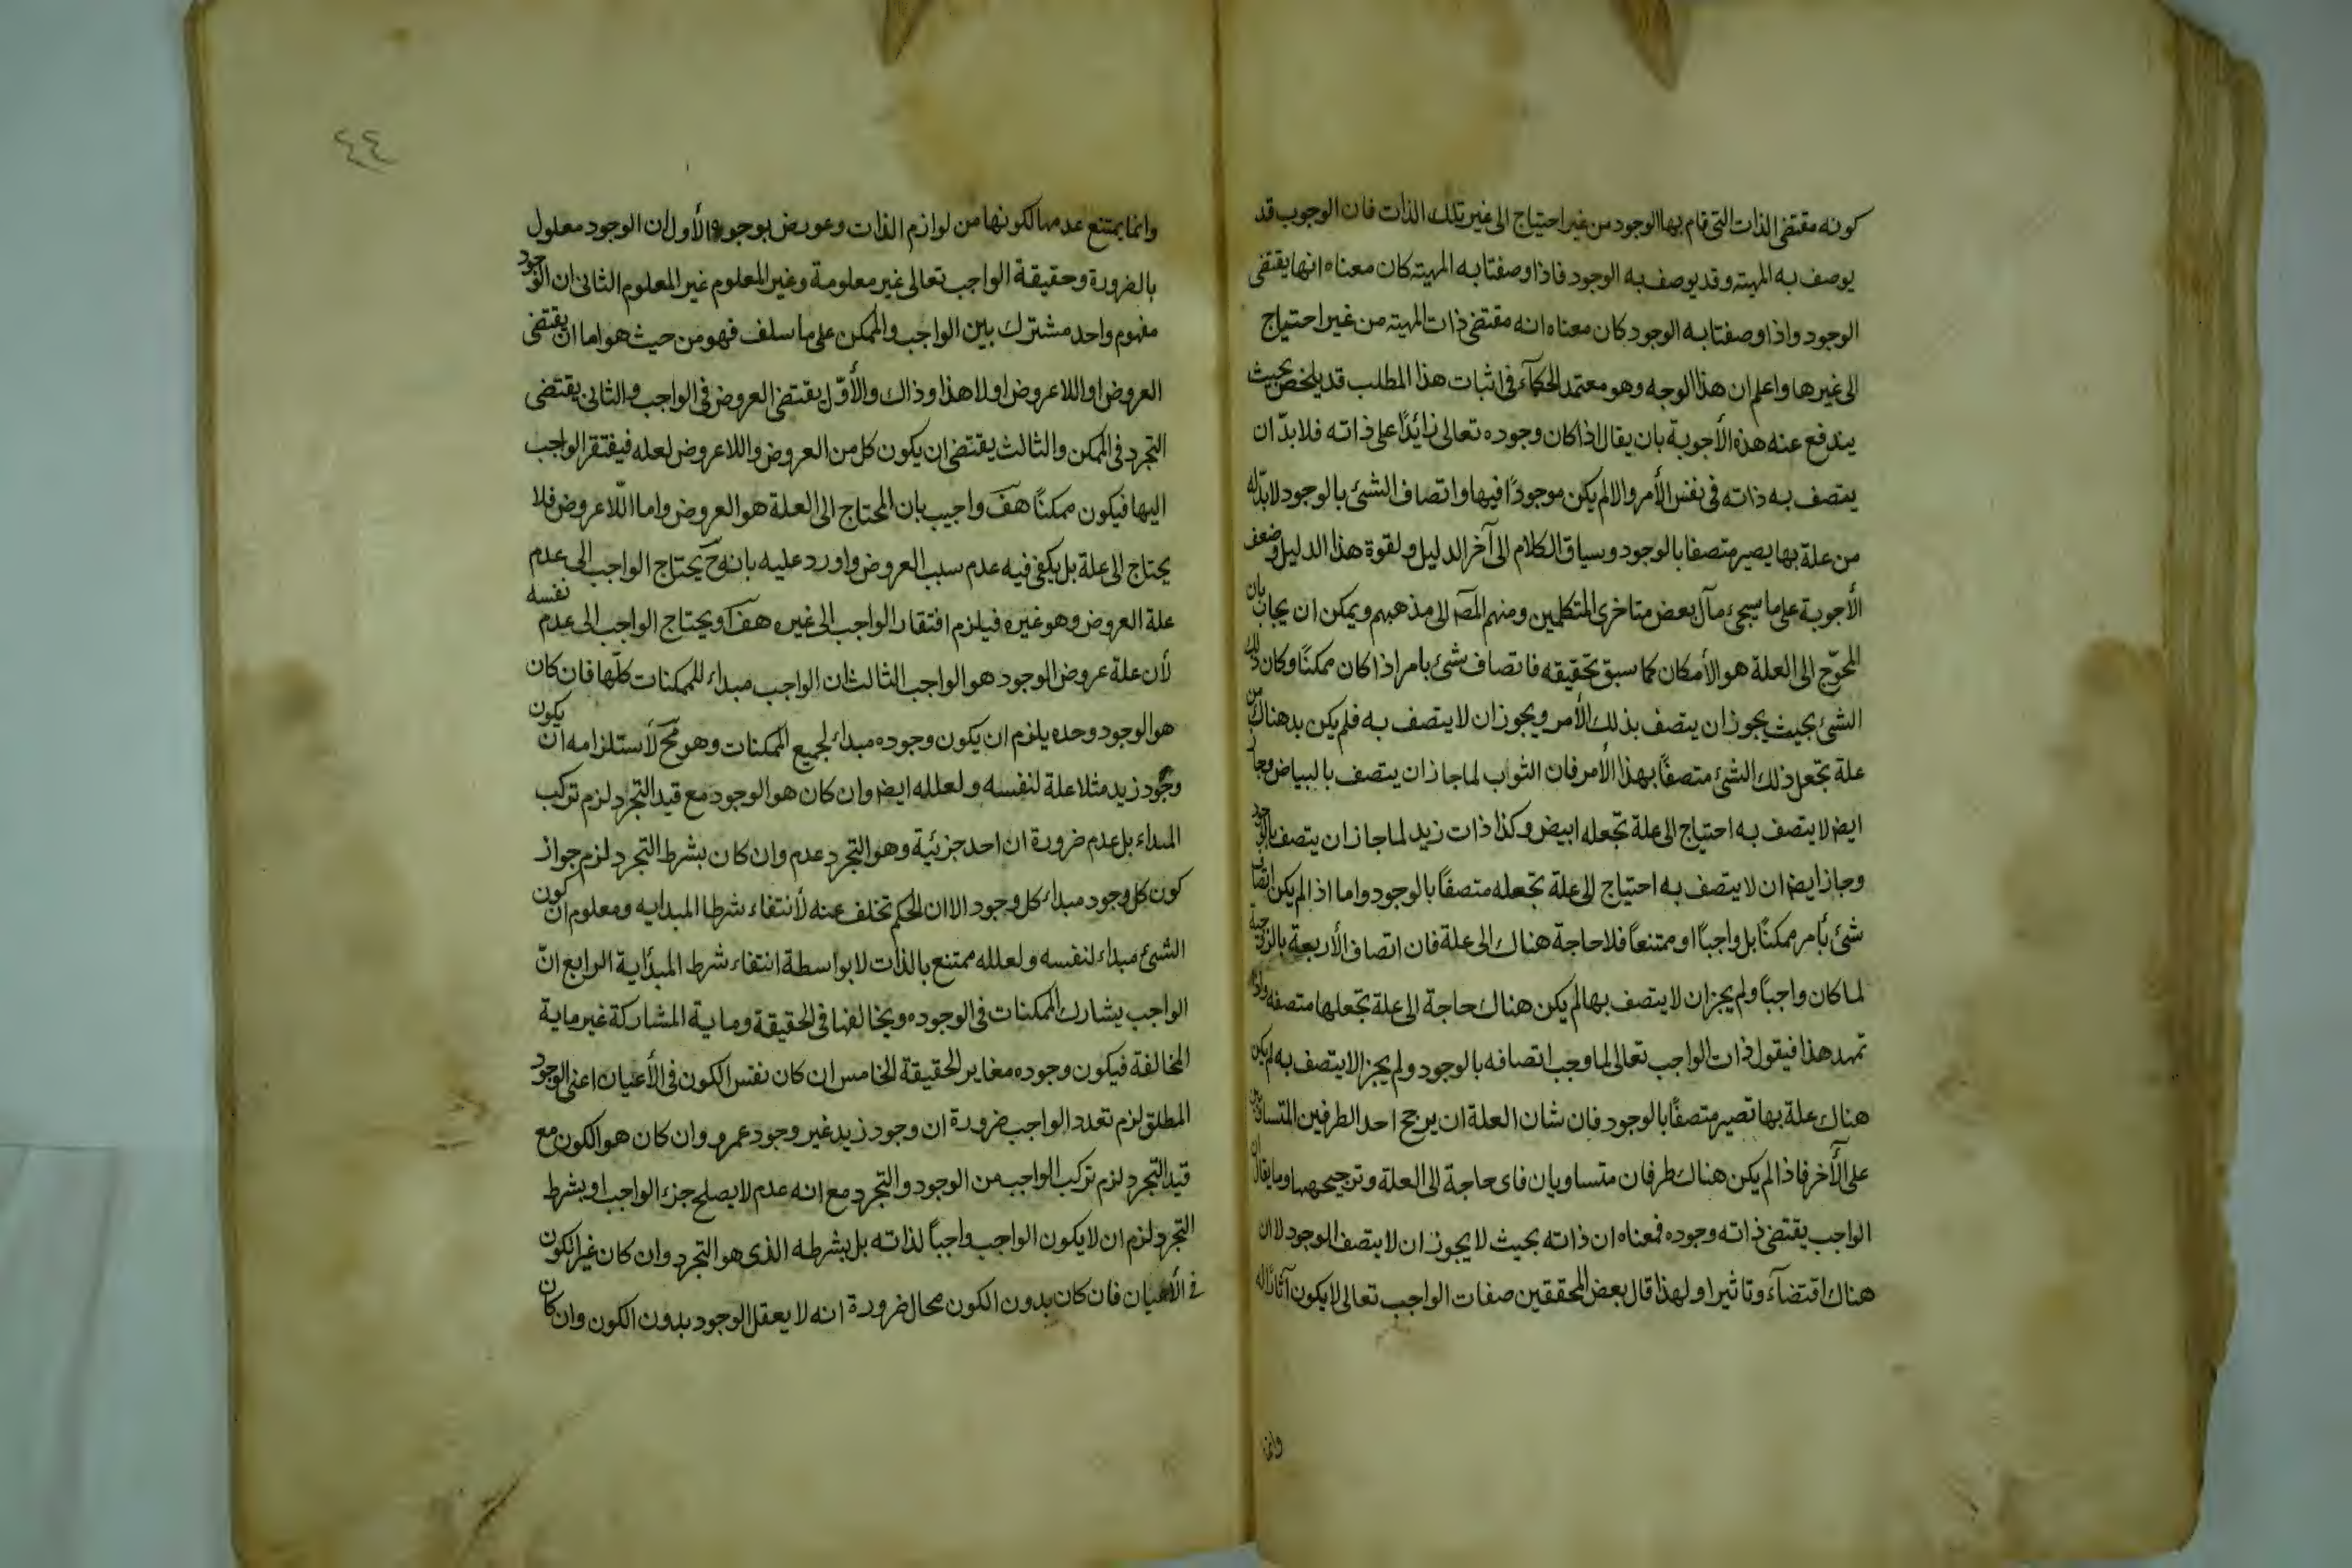 كونه مقتضى الذات التى قام بها الوجود من غير احتياج الى غير تلك الذات فان الوجوب قد
يوصف به المهية وقد يوصف به الوجود فاذا وصفتا به المهية كان معناه انها يقتضى
الوجود واذا وصفتا به الوجود كان معناه انه مقتضى ذات المهية من غير احتياج
الى غيرها واعلم ان هذا الوجه وهو معتمد الحكمآء فى اثبات هذا المطلب قد يلخص بحيث
يندفع عنه هذه الأجوبة بان يقال اذا كان وجوده تعالى زائدًا على ذاته فلا بدّ ان
يتصف به ذاته فى نفس الأمر والا لم يكن موجودًا فيها واتصاف الشئ بالوجود لا بدّ له
من علة بها يصير متصفا بالوجود وسياق الكلام الى آخر الدليل ولقوة هذا الدليل وضعف
الأجوبة على ما سيجئ مآل بعض متاخرى المتكلمين ومنهم المصَ الى مذهبهم ويمكن ان يجاب بان
المحوّج الى العلة هو الأمكان كما سبق تحقيقه فاتصاف شئ بامر اذا كان ممكنًا وكان ذلك
الشئ بحيث يجوز ان يتصف بذلك الأمر ويجوز ان لا يتصف به فلم يكن بد هناك من
علة تجعل ذلك الشئ متصفًا بهذا الأمر فان الثوب لما جاز ان يتصف بالبياض وجاز
ايض لا يتصف به احتياج الى علة تجعله ابيض وكذا ذات زيد لما جاز ان يتصف بالوجود
وجاز ايض ان لا يتصف به احتياج الى علة تجعله متصفًا بالوجود واما اذ لم يكن اتصاف
شئ بأمر ممكنًا بل واجبًا او ممتنعًا فلا حاجة هناك الى علة فان اتصاف الأربعة بالزوجية
لما كان واجبًا ولم يجز ان لا يتصف بها لم يكن هناك حاجة الى علة تجعلها متصفه واذا
تمهد هذا فيقول ذات الواجب تعالى لما وجب اتصافه بالوجود ولم يجز الا يتصف به لم يكن
هناك علة بها تصير متصفًا بالوجود فان شان العلة ان يرجح احد الطرفين المتساويين
على الأخر فاذ لم يكن هناك طرفان متساويان فاى حاجة الى العلة وترجيحهما وما يقال ان
الواجب يقتضى ذاته وجوده فمعناه ان ذاته بحيث لا يجوز ان لا يتصف الوجود لا ان
هناك اقتضآء وتاثيرا ولهذا قال بعض المحققين صفات الواجب تعالى لا يكون آثارًا له
وانما
٤٤
وانما يمتنع عدمها لكونها من لوازم الذات وعورض بوجوه الأول ان الوجود معلول
بالضرورة وحقيقة الواجب تعالى غير معلومة وغير المعلوم غير المعلوم الثانى ان الوجود
مفهوم واحد مشترك بين الواجب والممكن على ما سلف فهو من حيث هو اما ان يقتضى
العروض او اللاعروض او لا هذا وذاك والأوّل يقتضى العروض فى الواجب والثانى يقتضى
التجرد فى الممكن والثالث يقتضى ان يكون كل من العروض واللاعروض لعله فيفتقر الواجب
اليها فيكون ممكنًا هف واجيب بان المحتاج الى العلة هو العروض واما اللّاعروض فلا
يحتاج الى علة بل يكفى فيه عدم سبب العروض واورد عليه بانه ح يحتاج الواجب الى عدم
علة العروض وهو غيره فيلزم افتقار الواجب الى غيره هف او يحتاج الواجب الى عدم نفسه
لأن علة عروض الوجود هو الواجب الثالث ان الواجب مبداء للممكنات كلّها فان كان
هو الوجود وحده يلزم ان يكون وجوده مبداء لجميع الممكنات وهو مح لأستلزامه ان يكون
وجود زيد مثلا علة لنفسه ولعلله ايض وان كان هو الوجود مع قيد التجرد لزم تركب
المبداء بل عدم ضرورة ان احد جزئية وهو التجرد عدم وان كان بشرط التجرد لزم جواز
كون كل وجود مبداء كل وجود الا ان الحكم تخلف عنه لأنتفاء شرط المبدايه ومعلوم ان كون
الشئ مبداء لنفسه ولعلله ممتنع بالذات لا بواسطة انتفاء شرط المبدأية الرابع انّ
الواجب يشارك الممكنات فى الوجوده ويخالفها فى الحقيقة وما ية المشاركة غير ما ية
المخالفة فيكون وجوده مغاير الحقيقة الخامس ان كان نفس الكون فى الأعيان اعنى الوجود
المطلق لزم تعدد الواجب ضرورة ان وجود زيد غير وجود عمرو وان كان هو الكون مع
قيد التجرد لزم تركب الواجب من الوجود والتجرد مع انه عدم لا يصلح جزء الواجب او بشرط
التجرد لزم ان لا يكون الواجب واجبًا لذاته بل بشرطه الذى هو التجرد وان كان غير الكون
فى الأعيان فان كان بدون الكون محال ضرورة انه لا يعقل الوجود بدون الكون وان كان